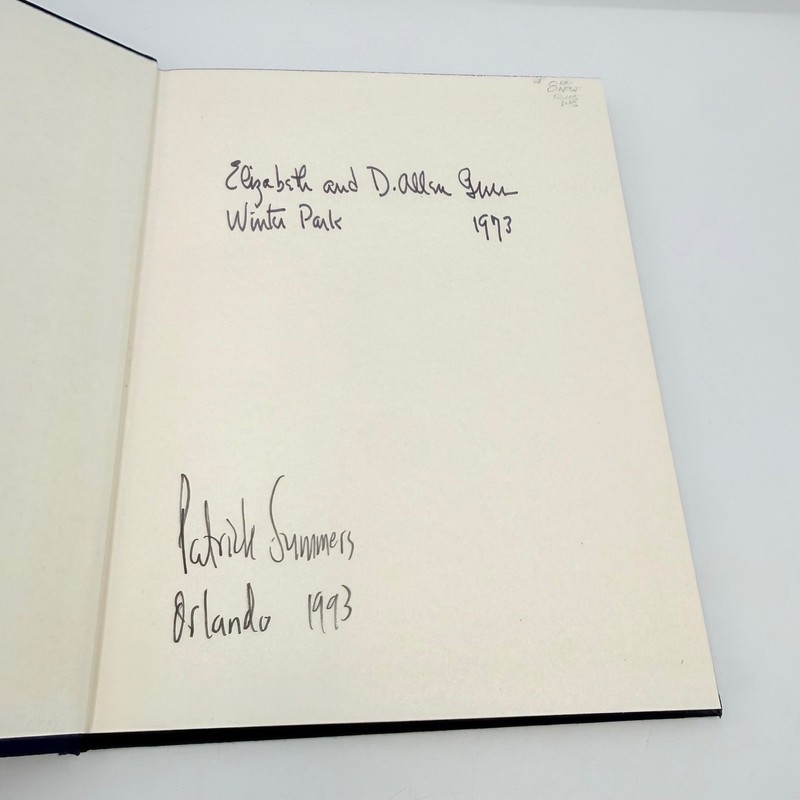 Elizabeth and D. Allen
Winter Park 1973
Patrick Summers
Orlando 1993